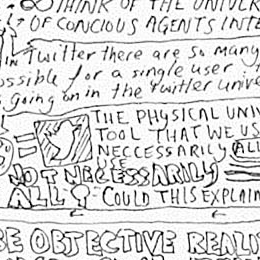 THINK OF THE UNIVER
OF CONCIOUS AGENTS INTE
in Twitter there are so many
ossible for a single user t
s going on in the twitter unive
THE PHYSICAL UNI
TOOL THAT WE US
NECCESSARILY ALL
USE
NOT NECESSARILY
ALL? COULD THIS EXPLAIN
BE OBJECTIVE REALI